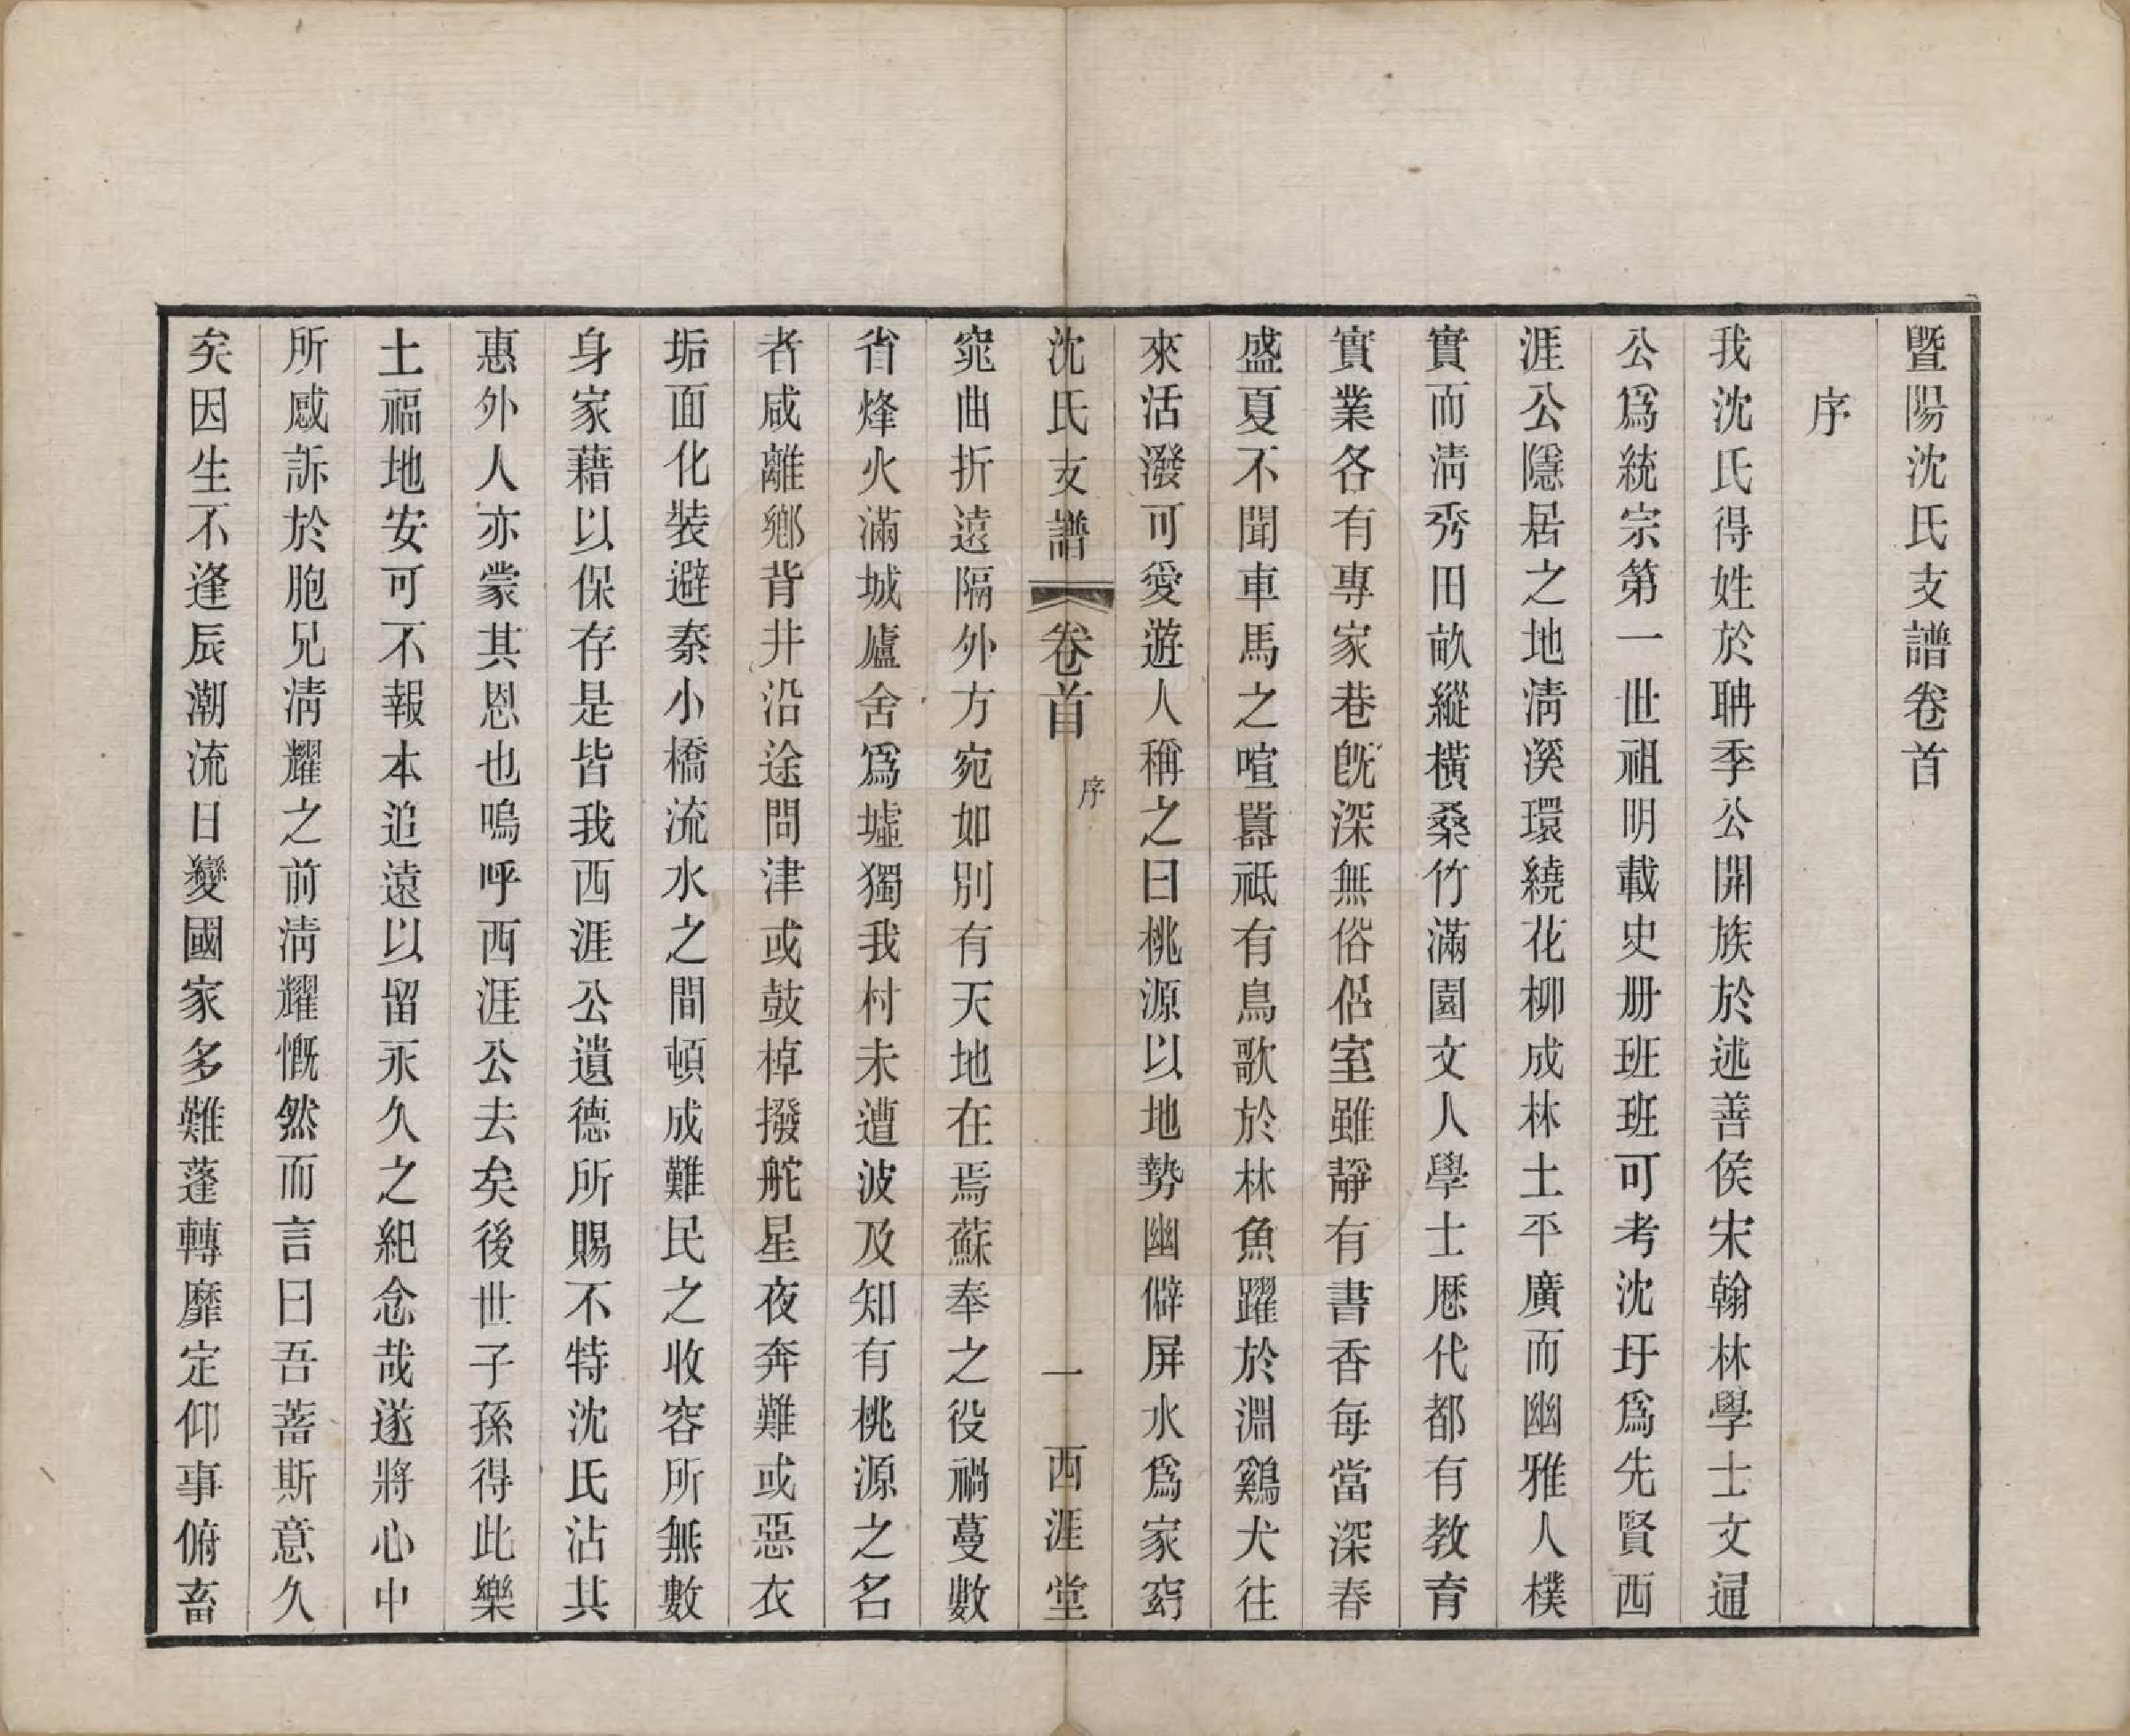 暨陽沈氏支譜卷首
序
我沈氏得姓於聃季公開族於述善侯宋翰林學士文通
公爲統宗第一世祖明載史册班班可考沈圩爲先賢西
涯公隱居之地淸溪環繞花柳成林土平廣而幽雅人樸
實而淸秀田畝縱橫桑竹滿園文人學士歷代都有敎育
實業各有專家巷旣深無俗侶室雖靜有書香每當深春
盛夏不聞車馬之喧囂祇有鳥歌於林魚躍於淵鷄犬往
來活潑可愛遊人稱之曰桃源以地勢幽僻屛水爲家窈
沈氏支譜 卷首 序 一 西涯堂
窕曲折遠隔外方宛如別有天地在焉蘇奉之役禍蔓數
省烽火滿城廬舍爲墟獨我村未遭波及知有桃源之名
者咸離鄕背井沿途問津或鼓棹撥舵星夜奔難或惡衣
垢面化裝避秦小橋流水之間頓成難民之收容所無數
身家藉以保存是皆我西涯公遺德所賜不特沈氏沾其
惠外人亦蒙其恩也嗚呼西涯公去矣後世子孫得此樂
土福地安可不報本追遠以留永久之紀念哉遂將心中
所感訴於胞兄淸耀之前淸耀慨然而言曰吾蓄斯意久
矣因生不逢辰潮流日變國家多難蓬轉靡定仰事俯畜